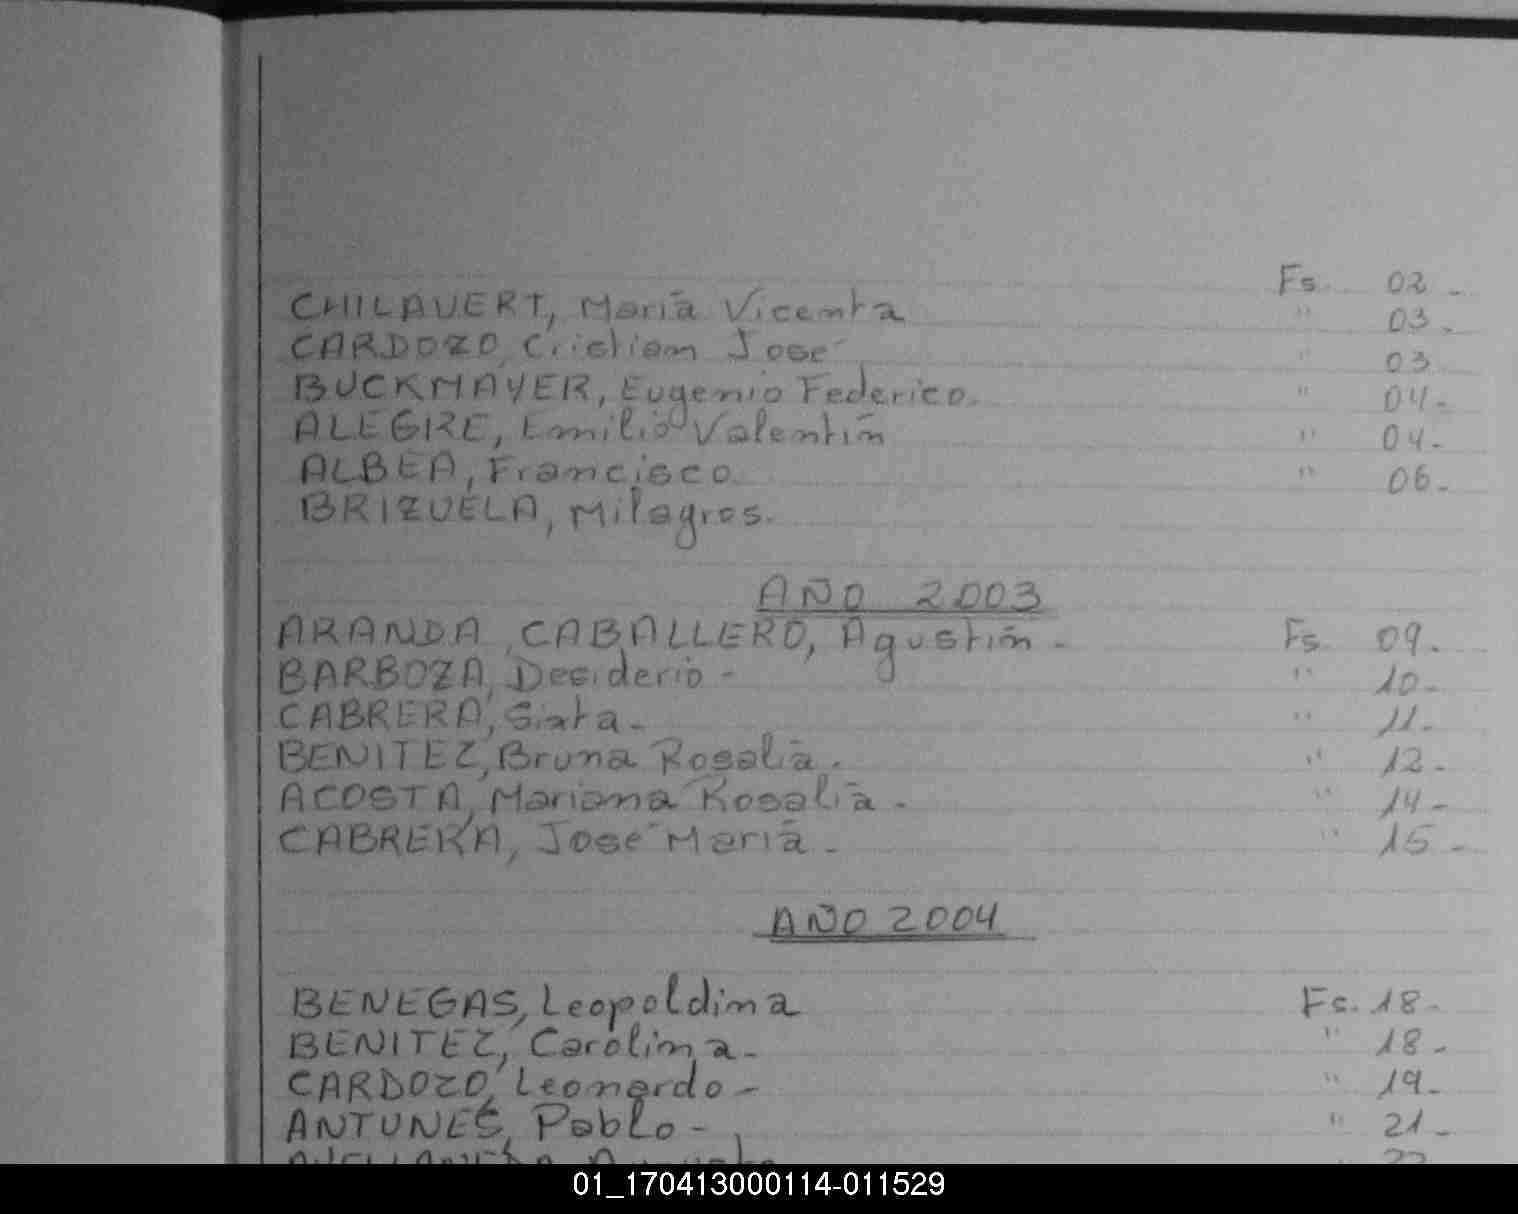 CHILAVERT, María Vicenta Fs. 02.
CARDOZO, Cristian José " 03.
BUCKMAYER, Eugenio Federico. " 03
ALEGRE, Emilio Valentín " 04.
ALBEA, Francisco " 04.
BRIZUELA, Milagros. " 06.
AÑO 2003
ARANDA CABALLERO, Agustín - Fs. 09.
BARBOZA, Desiderio - " 10.
CABRERA, Sixta - " 11.
BENITEZ, Bruna Rosalía. " 12.
ACOSTA, Mariana Rosalía - " 14 -
CABRERA, José María - " 15 -
AÑO 2004
BENEGAS, Leopoldina Fs. 18 -
BENITEZ, Carolina - " 18 -
CARDOZO, Leonardo - " 19 -
ANTUNES, Pablo - " 21 -
22
01_170413000114-011529